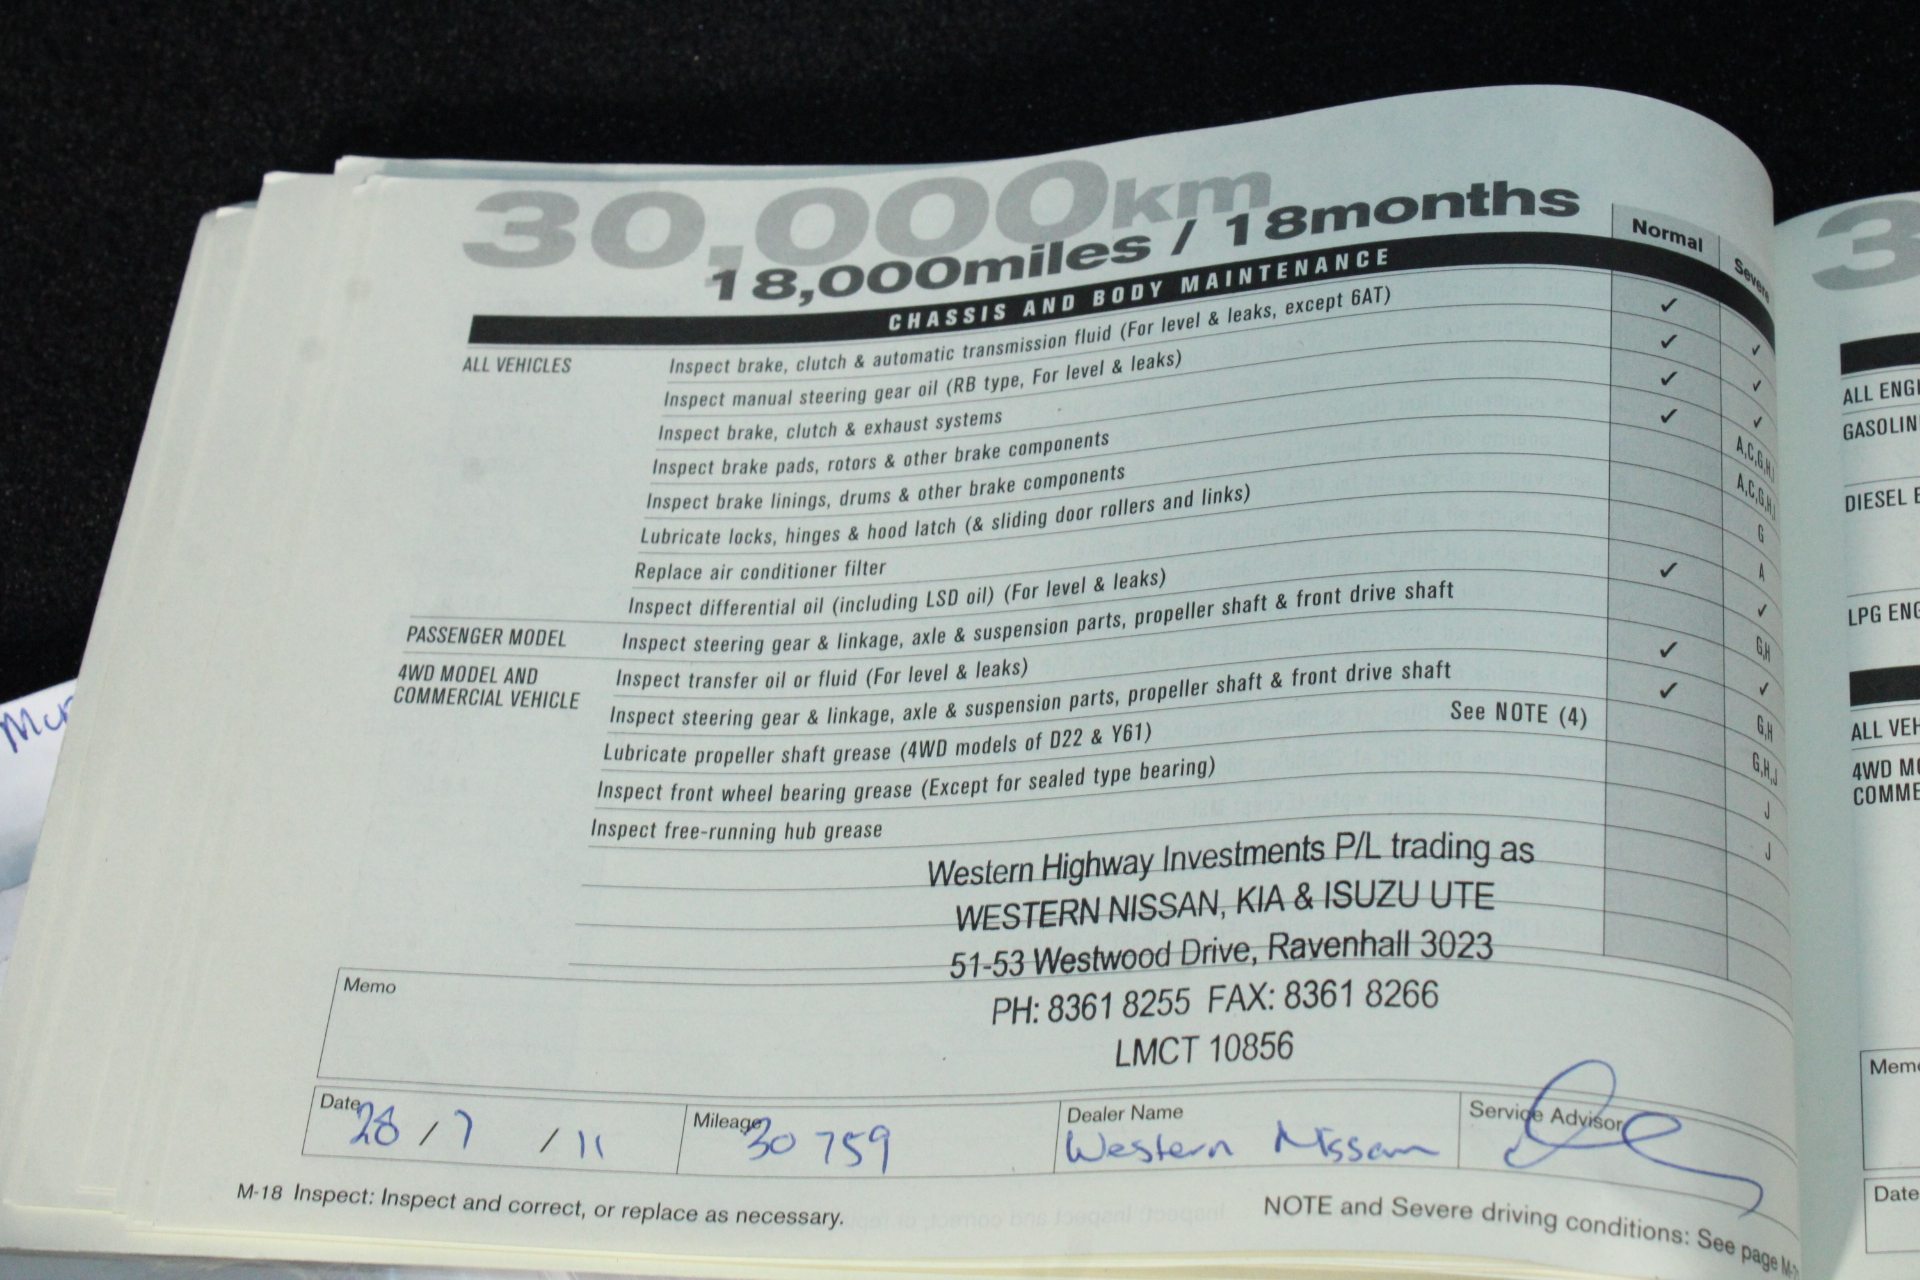 30,000km
18,000miles / 18months
Normal
CHASSIS AND BODY MAINTENANCE
ALL VEHICLES
Inspect brake, clutch & automatic transmission fluid (For level & leaks, except 6AT) ✓ ✓
Inspect manual steering gear oil (RB type, For level & leaks) ✓ ✓
Inspect brake, clutch & exhaust systems ✓ ✓
Inspect brake pads, rotors & other brake components ✓ A,C,G,H,J
Inspect brake linings, drums & other brake components A,C,G,H,J
Lubricate locks, hinges & hood latch (& sliding door rollers and links) G
Replace air conditioner filter A
Inspect differential oil (including LSD oil) (For level & leaks) ✓ ✓
PASSENGER MODEL Inspect steering gear & linkage, axle & suspension parts, propeller shaft & front drive shaft G,H
4WD MODEL AND
COMMERCIAL VEHICLE
Inspect transfer oil or fluid (For level & leaks) ✓ ✓
Inspect steering gear & linkage, axle & suspension parts, propeller shaft & front drive shaft ✓ G,H
Lubricate propeller shaft grease (4WD models of D22 & Y61) See NOTE (4) G,H,J
Inspect front wheel bearing grease (Except for sealed type bearing) J
Inspect free-running hub grease J
Western Highway Investments P/L trading as
WESTERN NISSAN, KIA & ISUZU UTE
51-53 Westwood Drive, Ravenhall 3023
PH: 8361 8255 FAX: 8361 8266
LMCT 10856
Memo
Date 28 / 7 / 11
Mileage 30 759
Dealer Name
Western Nissan
Service Advisor
M-18 Inspect: Inspect and correct, or replace as necessary.
NOTE and Severe driving conditions: See page
3
ALL
DIESEL
LPG
ALL
4WD
Date